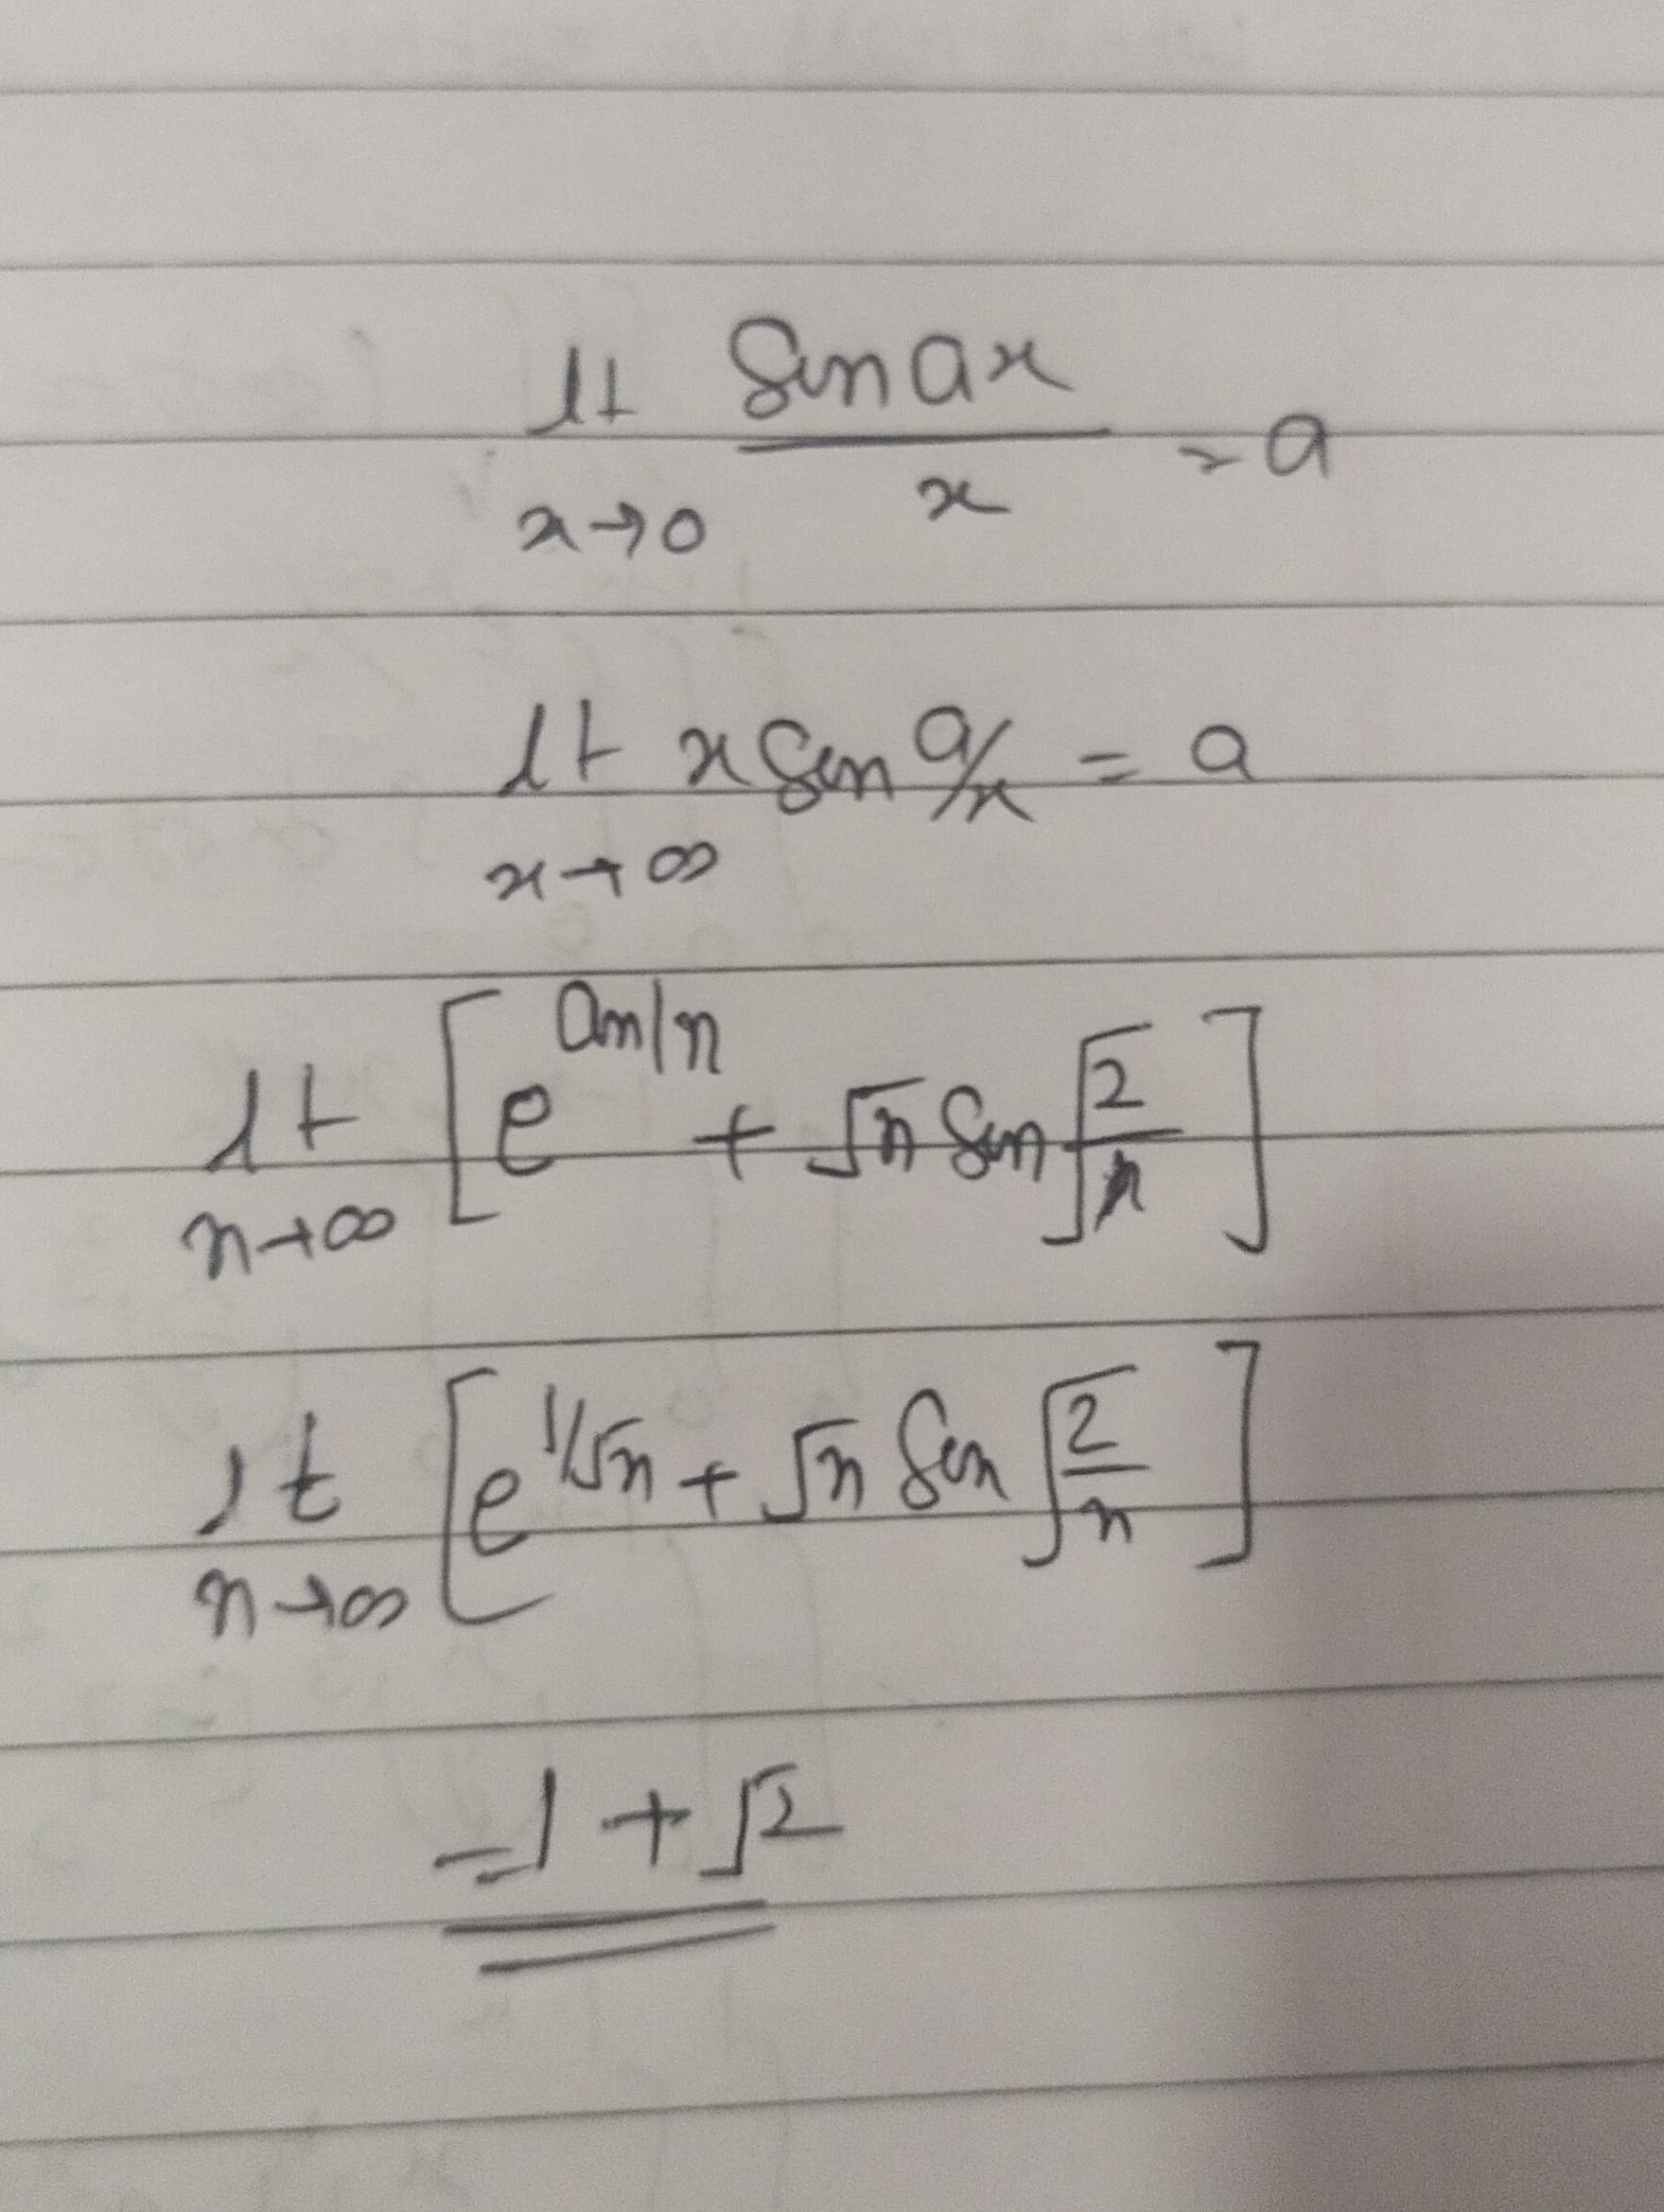 lt sin ax / x = a
x→0
lt x sin a/x = a
x→∞
lt [e^(an/n) + √n sin √(2/n)]
n→∞
lt [e^(1/√n) + √n sin √(2/n)]
n→∞
= 1 + √2